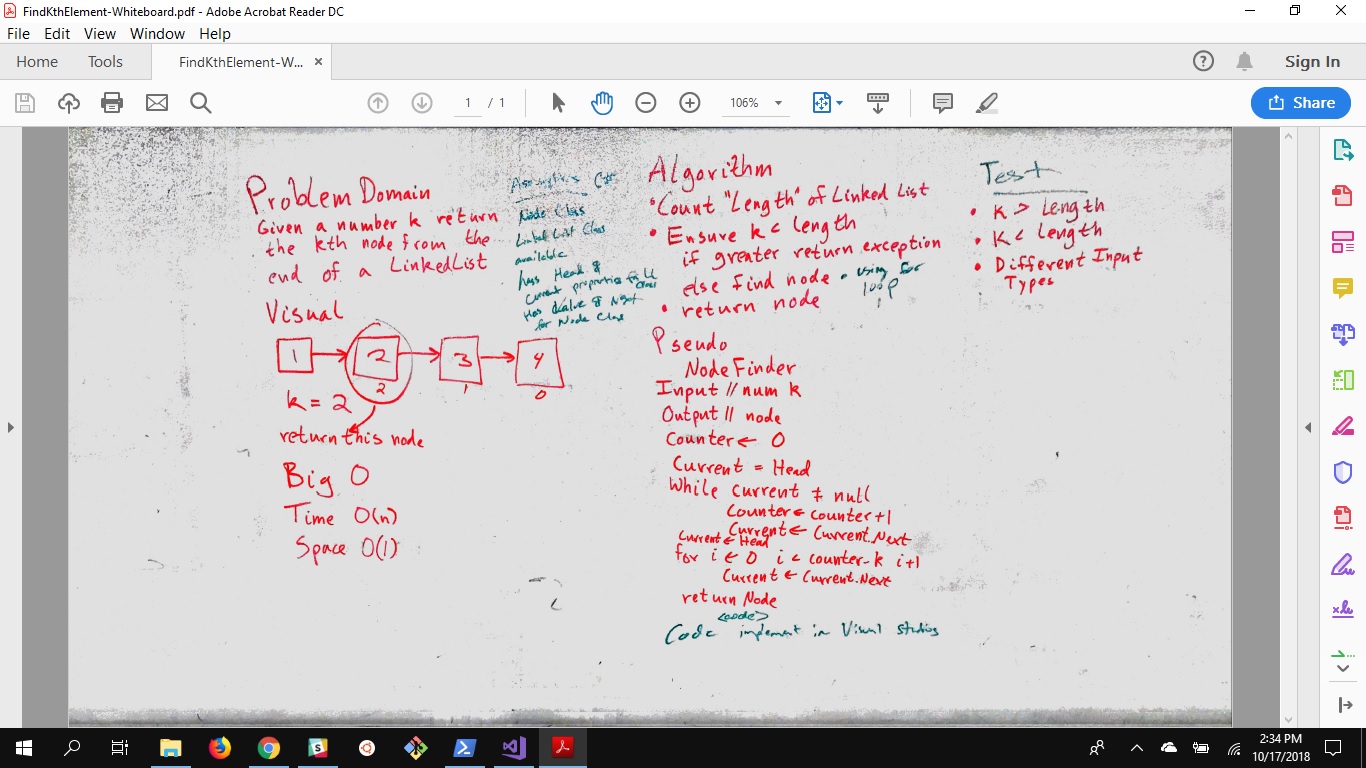 FindKthElement-Whiteboard.pdf - Adobe Acrobat Reader DC
File Edit View Window Help
Home Tools FindKthElement-W... ×
Sign In
1 / 1
106%
Share
Problem Domain
Given a number k return
the kth node from the
end of a LinkedList
Visual
1 2 3 4
2 1 0
k = 2
return this node
Big O
Time O(n)
Space O(1)
Node Class
Linked List Class
available
has Head &
Current properties
for Node Class
Algorithm
• Count "Length" of Linked List
• Ensure k < length
if greater return exception
else find node • using for
loop
• return node
Pseudo
NodeFinder
Input // num k
Output // node
Counter ← 0
Current = Head
While current ≠ null
Counter ← counter+1
Current ← Current.Next
Current ← Head
for i ← 0 i < counter-k i+1
Current ← Current.Next
return Node
<code>
Code implement in Visual studios
Test
• K > Length
• K < Length
• Different Input
Types
2:34 PM
10/17/2018